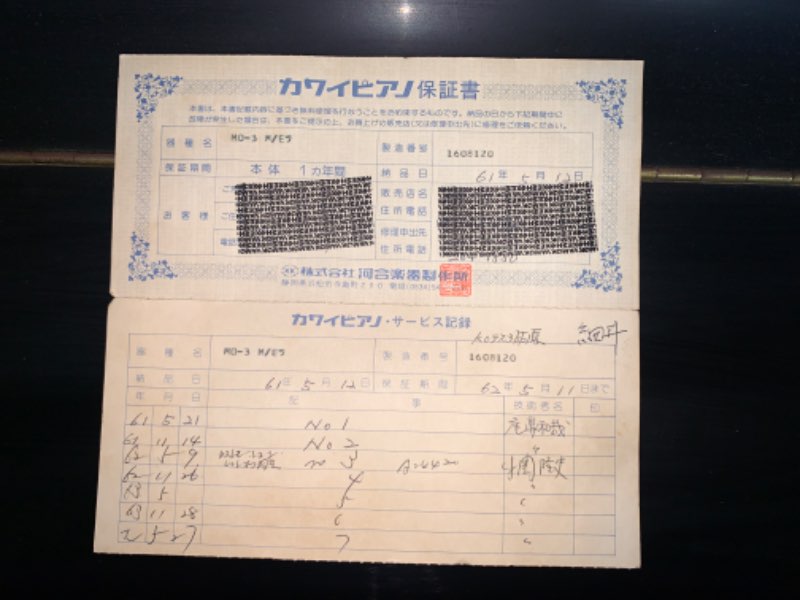 カワイピアノ保証書
本書は、本書記載内容に基づき無料修理を行なうことをお約束するものです。納品の日から下記期間中に
故障が発生した場合は、本書をご提示の上、お買上げの販売店(又は修理申出先)に修理をご依頼ください。
器種名 MO-3 M/Eラ 製造番号 1608120
保証期間 本体 1カ年間 納品日 61年5月12日
お客様 販売店名
住所電話
電話 修理申出先
住所電話
株式会社 河合楽器製作所
カワイピアノ・サービス記録
器種名 MO-3 M/Eラ 製造番号 1608120
納品日 61年5月12日 保証期限 62年5月11日まで
年月日 記事 技術者名 印
61 5 21 No 1
11 14 No 2
62 5 9 No 3
62 11 26 4
63 5 5
63 11 28 6
元 5 27 7